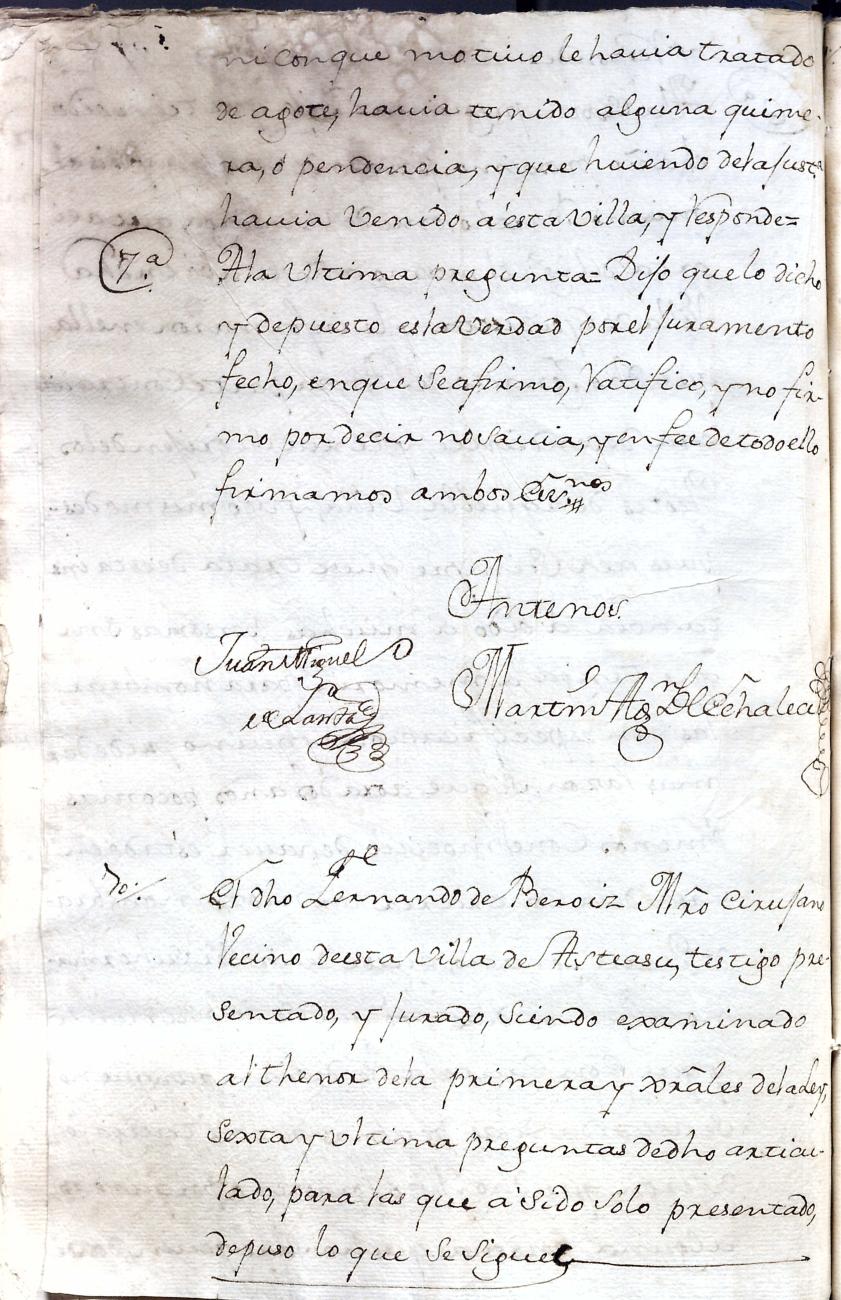 ni con que motivo le havia tratado
de agote, havia tenido alguna quime-
ra, ó pendencia, y que huiendo dela Just.ª
havia Venido á esta Villa, y Responde=
7.ª
Ala Ultima pregunta= Dijo que lo dicho
y depuesto esla Verdad por el Juramento
fecho, en que Se afirmo, Ratifico, y no fir-
mo por decir no Savia, y en fee de todo ello
firmamos ambos Es.nos
Antenos.
Juan Miguel
de Lanz
Martin Ag.n D Echalecu
do:
El dho Fernando de Beroiz Mr̃o Cirujano
Vecino de esta Villa de Asteasu, testigo pre-
sentado, y Jurado, Siendo examinado
al thenor dela primera y xrãles dela Ley,
Sexta y Ultima preguntas de dho articu-
lado, para las que á Sido Solo presentado,
depuso lo que Se Sigue